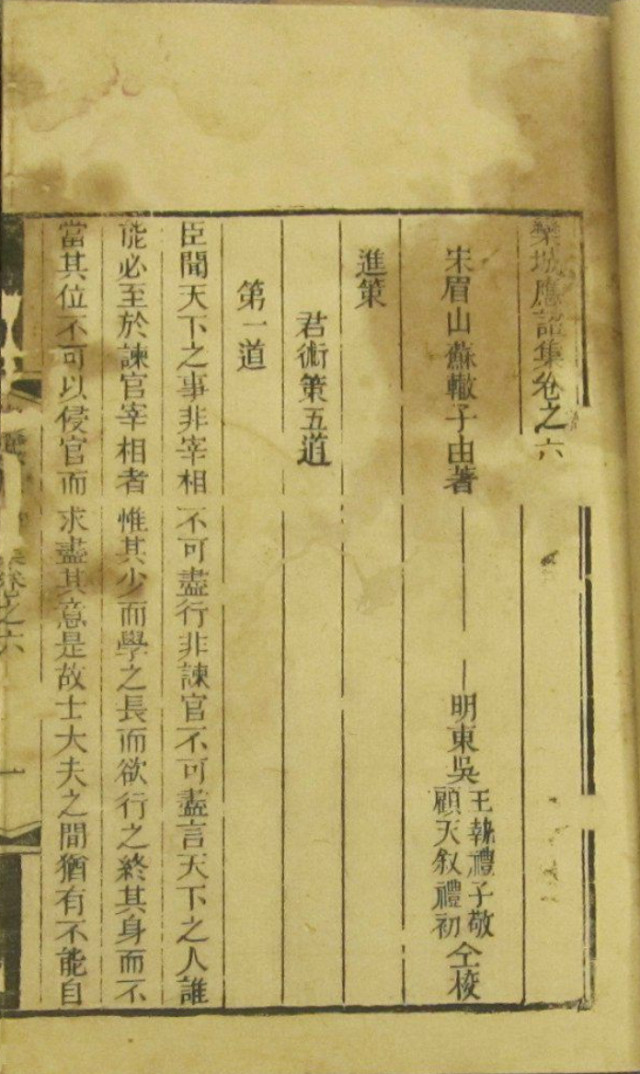 欒城應詔集卷之六
宋眉山蘇轍子由著
明東吳
王執禮子敬
顧天敘禮初
仝校
進策
君術策五道
第一道
臣聞天下之事非宰相不可盡行非諫官不可盡言天下之人誰
能必至於諫官宰相者惟其少而學之長而欲行之終其身而不
當其位不可以侵官而求盡其意是故士大夫之間猶有不能自
卷之六
一